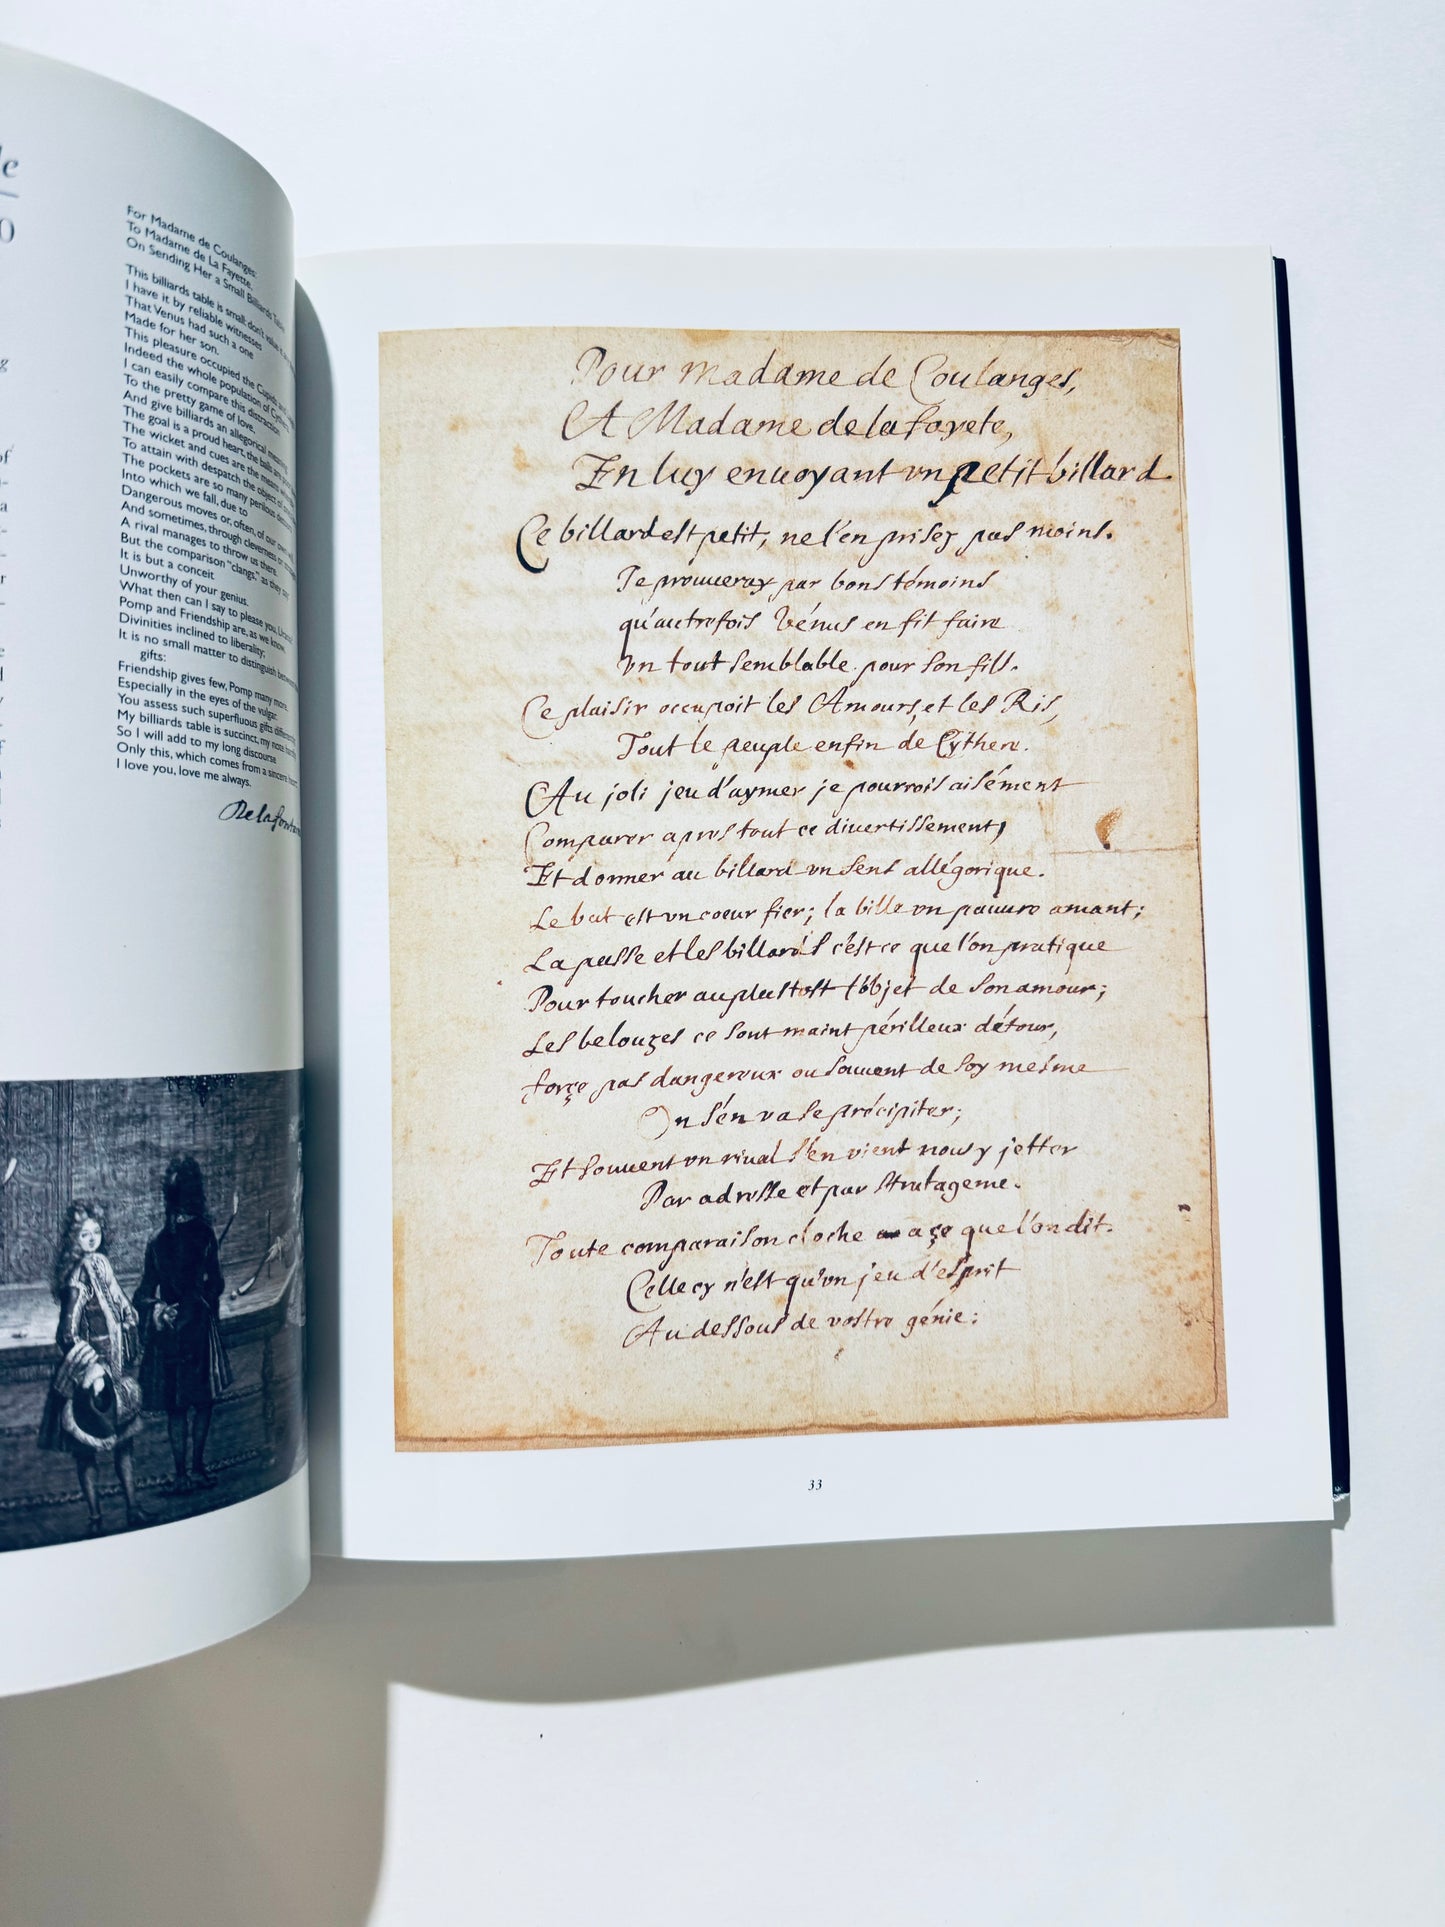 For Madame de Coulanges:
To Madame de La Fayette.
On Sending Her a Small Billiards Table
This billiards table is small: don't value it
I have it by reliable witnesses
That Venus had such a one
Made for her son.
This pleasure occupied the Cupids and
Indeed the whole population of
I can easily compare this distraction
To the pretty game of love,
And give billiards an allegorical meaning
The goal is a proud heart, the balls
The wicket and cues are the means
To attain with despatch the object of
The pockets are so many perilous
Into which we fall, due to
Dangerous moves or, often, of our own
And sometimes, through cleverness or
A rival manages to throw us there.
But the comparison "clangs," as they say
It is but a conceit
Unworthy of your genius.
What then can I say to please you,
Pomp and Friendship are, as we know,
Divinities inclined to liberality;
It is no small matter to distinguish between
gifts:
Friendship gives few, Pomp many more,
Especially in the eyes of the vulgar.
You assess such superfluous gifts
My billiards table is succinct, my note
So I will add to my long discourse
Only this, which comes from a sincere heart
I love you, love me always.
Pour Madame de Coulanges,
A Madame de la fayete,
En luy enuoyant vn petit billard
Ce billard est petit, ne l'en prisez pas moins.
Je prouueray par bons témoins
qu'autrefois Vénus en fit faire
Vn tout semblable pour son fils.
Ce plaisir occupoit les Amours, et les Ris,
Tout le peuple enfin de Cythere.
Au joli jeu d'aymer je pourrois aisément
Comparer apres tout ce divertissement,
Et donner au billard vn sens allégorique.
Le but est vn coeur fier; la bille vn pauure amant;
La passe et les billards c'est ce que l'on pratique
Pour toucher au plustost l'objet de son amour;
Les belouzes ce sont maint périlleux détour,
force pas dangereux ou souuent de soy mesme
On s'en va se précipiter;
Et souuent vn riual s'en vient nous y jetter
Par adresse et par stratageme.
Toute comparaison cloche a çe que l'on dit.
Celle cy n'est qu'vn jeu d'esprit
Au dessous de vostre génie:
33